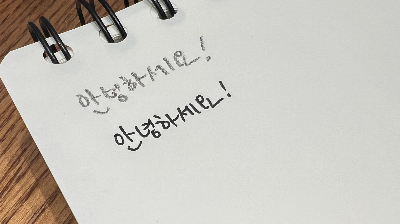 안녕하세요!
안녕하세요!